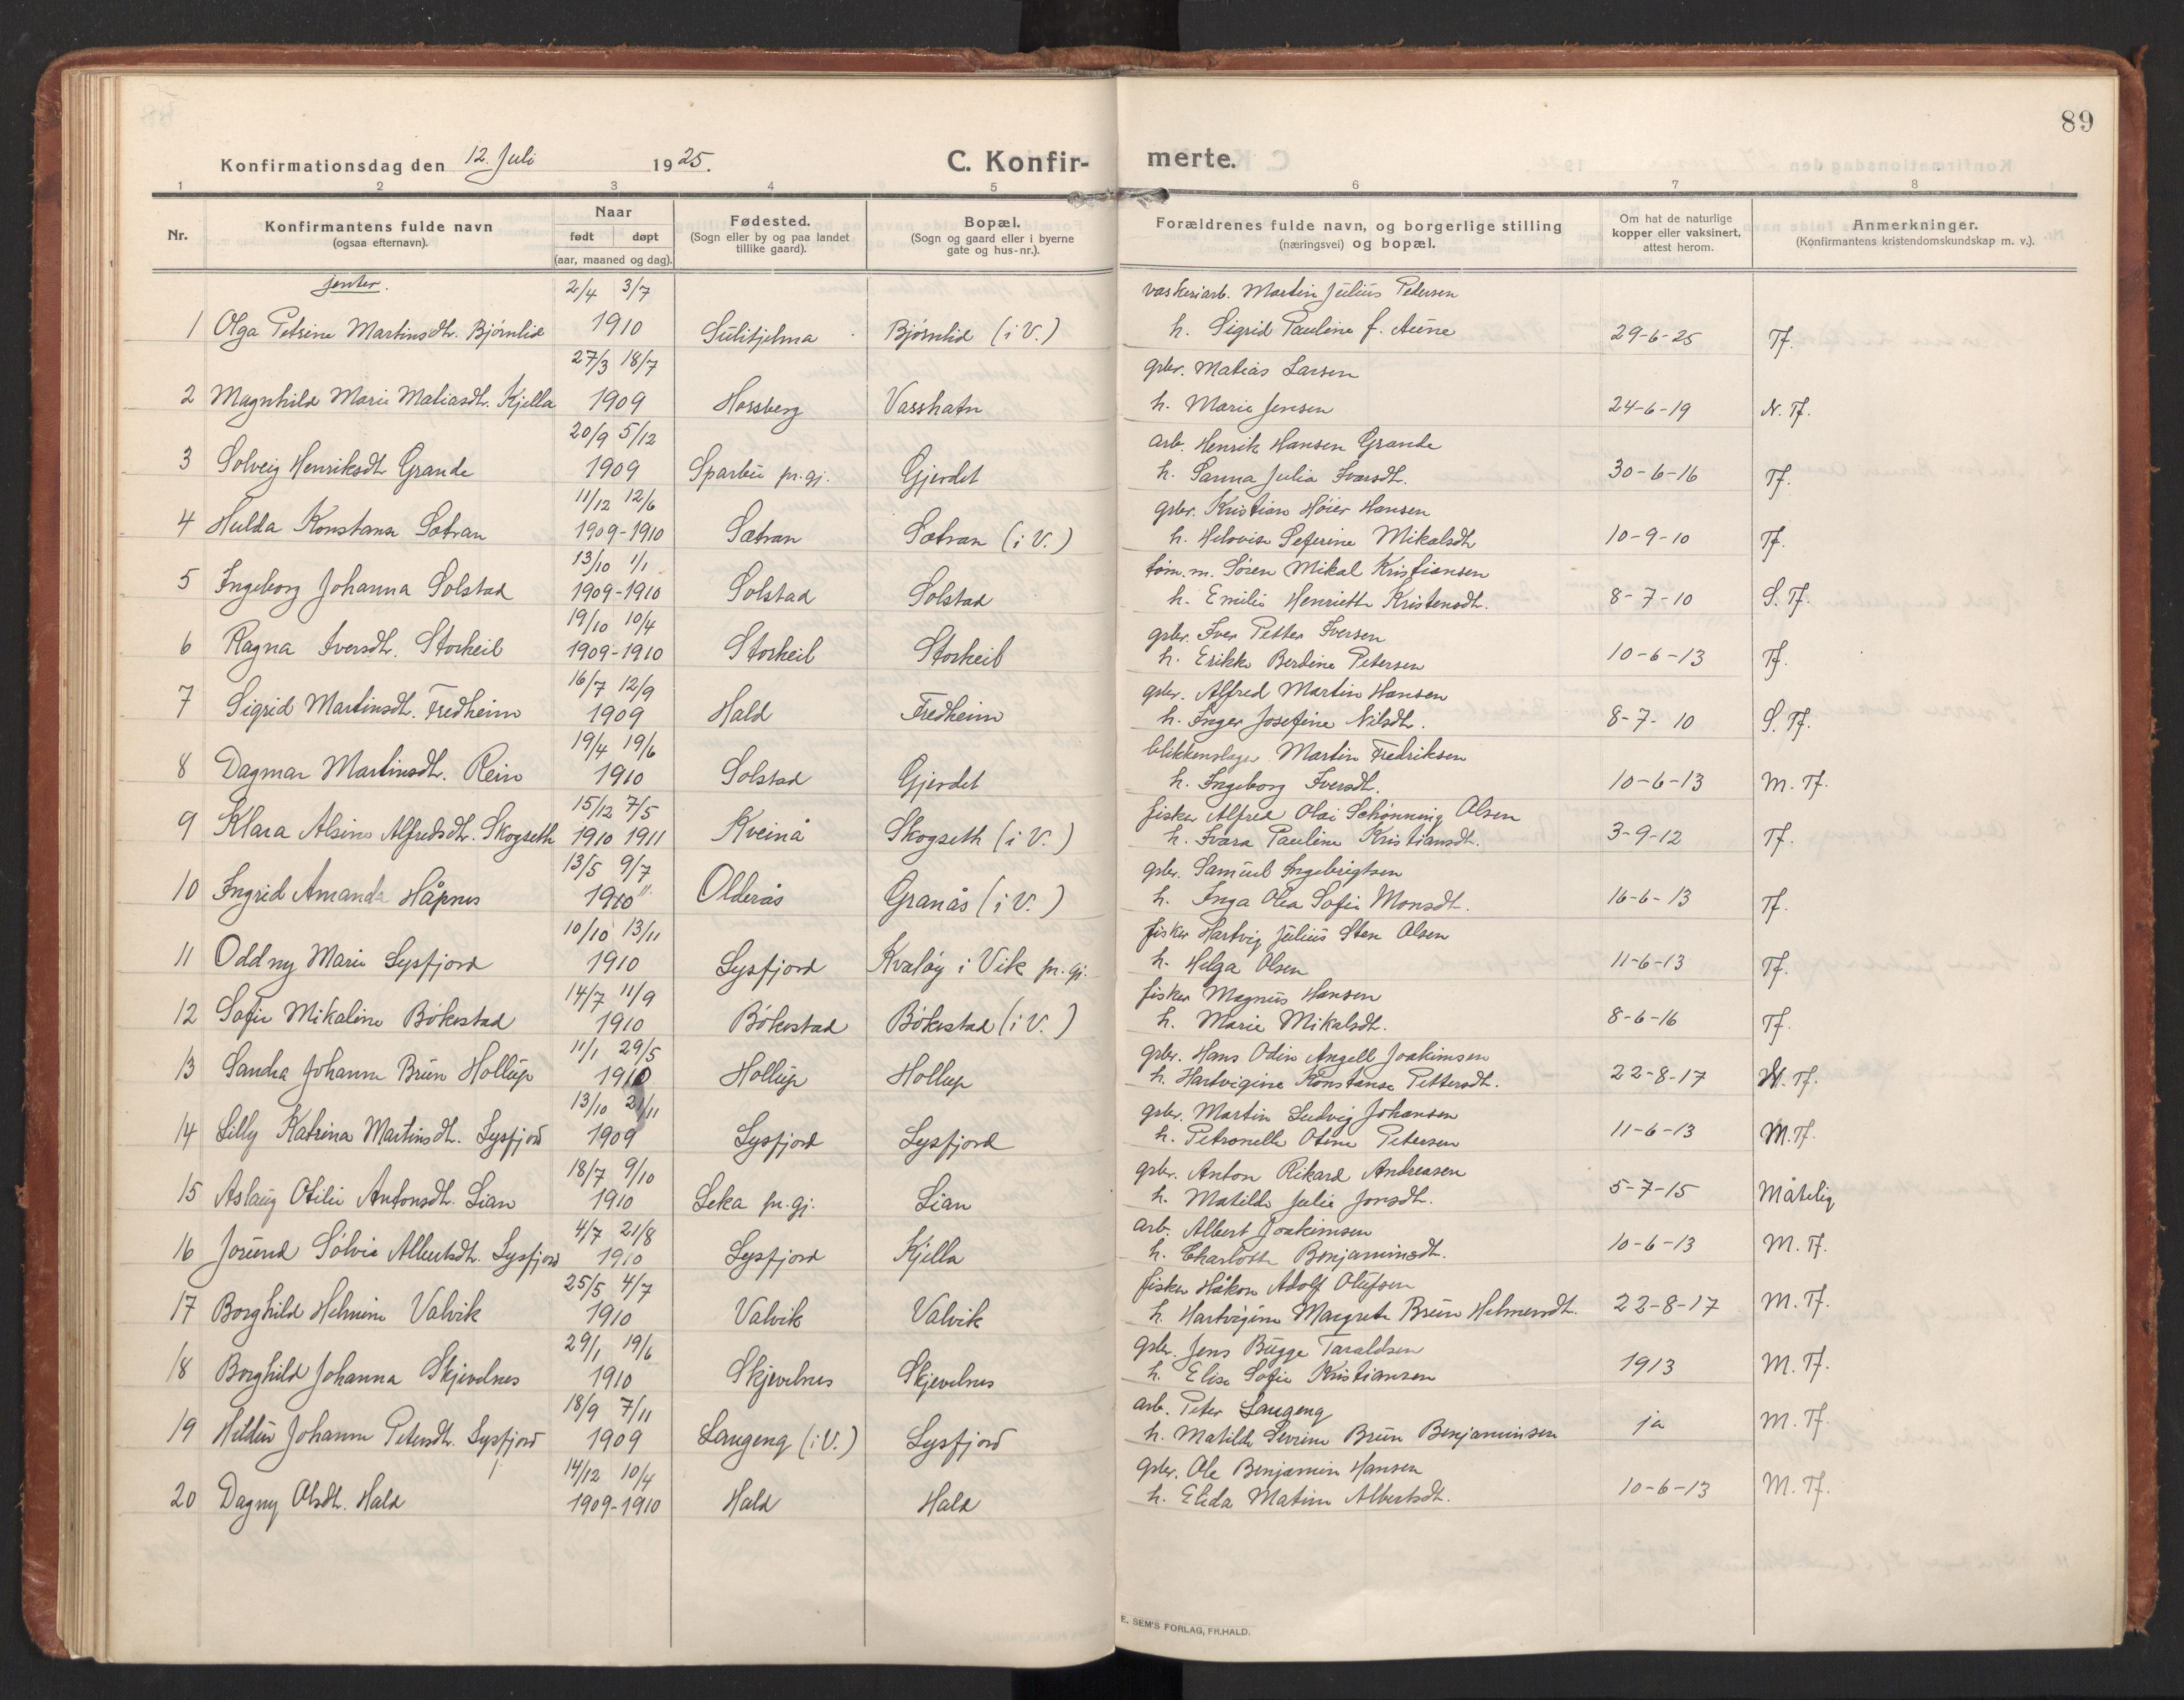 89
Konfirmationsdag den 12. Juli 1925. C. Konfirmerte.
1 2 3 4 5 6 7 8
Nr. Konfirmantens fulde navn (ogsaa efternavn). Naar født døpt (aar, maaned og dag). Fødested. (Sogn eller by og paa landet tillike gaard). Bopæl. (Sogn og gaard eller i byerne gate og hus-nr.). Forældrenes fulde navn, og borgerlige stilling (næringsvei) og bopæl. Om hat de naturlige kopper eller vaksinert, attest herom. Anmerkninger. (Konfirmantens kristendomskundskap m. v.).
jenter. 2/4 3/7 vaskeriarb. Martin Julius Pedersen
1 Olga Petrine Martinsdtr. Bjørnlid 1910 Sulitjelma Bjørnlid (i V.) h. Sigrid Pauline f. Aune 29-6-25 Tf.
27/3 18/7 gbr. Matias Larsen
2 Magnhild Marie Matiasdtr. Kjella 1909 Horsberg Vasshatn h. Marie Jensen 24-6-19 N. Tf.
20/9 5/12 arb. Henrik Hansen Grande
3 Solveig Henriksdtr Grande 1909 Sparbu pr.gj. Gjerdet h. Sanna Julia Ivarsdtr. 30-6-16 Tf.
11/12 12/6 gbr. Kristian Høier Hansen
4 Hulda Konstanse Sætran 1909-1910 Sætran Sætran (i V.) h. Helovise Seferine Mikalsdtr 10-9-10 Tf.
13/10 1/1 tøm.m. Søren Mikal Kristiansen
5 Ingeborg Johanna Solstad 1909-1910 Solstad Solstad h. Emilie Henriette Kristensdtr. 8-7-10 S. Tf.
19/10 10/4 gbr. Iver Petter Iversen
6 Ragna Iversdtr. Storheil 1909-1910 Storheil Storheil h. Erikke Berdine Petersen 10-6-13 Tf.
16/7 12/9 gbr. Alfred Martin Hansen
7 Sigrid Martinsdtr. Fredheim 1909 Hald Fredheim h. Inger Josefine Nilsdtr. 8-7-10 S. Tf.
19/4 19/6 blikkenslager Martin Fredriksen
8 Dagmar Martinsdtr. Rein 1910 Solstad Gjerdet h. Ingeborg Iversdtr. 10-6-13 M. Tf.
15/12 7/5 fisker Alfred Olai Schønning Olsen
9 Klara Alsine Alfredsdtr. Skogseth 1910 1911 Kveinå Skogseth (i V.) h. Ivara Pauline Kristiansdtr. 3-9-12 Tf.
13/5 9/7 gbr. Samuel Ingebrigtsen
10 Ingrid Amanda Håpnes 1910 Olderås Granås (i V.) h. Inga Olea Sofie Monsdtr. 16-6-13 Tf.
10/10 13/11 fisker Hartvig Julius Sten Olsen
11 Oddny Marie Lysfjord 1910 Lysfjord Kvaløy i Vik pr.gj. h. Helga Olsen 11-6-13 Tf.
14/7 11/9 fisker Magnus Hansen
12 Sofie Mikaline Bøkestad 1910 Bøkestad Bøkestad (i V.) h. Marie Mikalsdtr. 8-6-16 Tf.
11/1 29/5 gbr. Hans Odin Angell Joakimsen
13 Sandra Johanne Brun Hollup 1910 Hollup Hollup h. Hartvigine Konstanse Pettersdtr. 22-8-17 M. Tf.
13/10 21/11 gbr. Martin Ludvig Johansen
14 Lilly Katrina Martinsdtr. Lysfjord 1909 Lysfjord Lysfjord h. Petronelle Otine Petersen 11-6-13 M. Tf.
18/7 9/10 gbr. Anton Rikard Andreasen
15 Aslaug Otilie Antonsdtr. Lian 1910 Leka pr.gj. Lian h. Matilde Julie Jonsdtr. 5-7-15 Måtelig
4/7 21/8 arb. Albert Joakimsen
16 Jorund Sølvie Albertsdtr. Lysfjord 1910 Lysfjord Kjella h. Charlotte Benjaminsdtr. 10-6-13 M. Tf.
25/5 4/7 fisker Håkon Adolf Olufsen
17 Borghild Helmine Valvik 1910 Valvik Valvik h. Hartvigine Margrete Brun Helmersdtr. 22-8-17 M. Tf.
29/1 19/6 gbr. Jens Bugge Taraldsen
18 Borghild Johanna Skjevelnes 1910 Skjevelnes Skjevelnes h. Elise Sofie Kristiansen 1913 M. Tf.
18/9 7/11 arb. Peter Laugeng
19 Hildur Johanne Petersdtr. Lysfjord 1909 Laugeng (i V.) Lysfjord h. Matilde Severine Brun Benjaminsen ja M. Tf.
14/12 10/4 gbr. Ole Benjamin Hansen
20 Dagny Olsdtr. Hald 1909-1910 Hald Hald h. Elida Matine Albertsdtr. 10-6-13 M. Tf.
E. SEM'S FORLAG, FR.HALD.